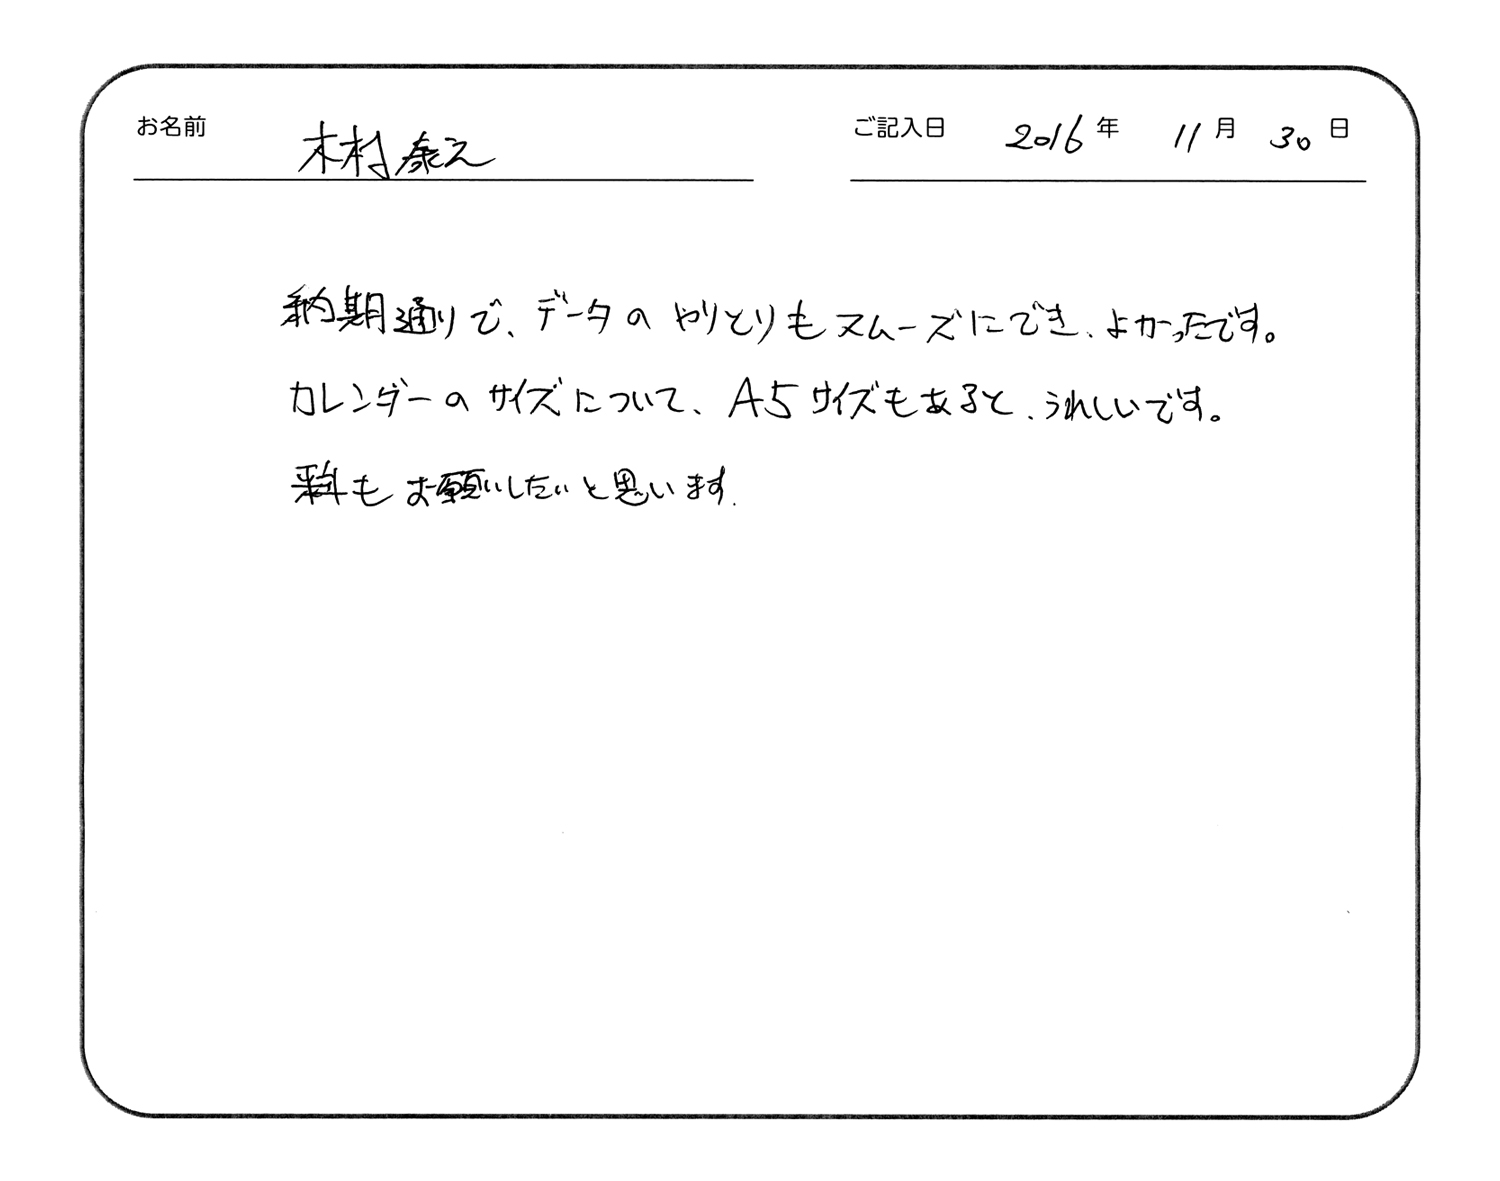 お名前 木村 泰之 ご記入日 2016年 11月 30日
納期通りで、データのやりとりもスムーズにでき、よかったです。
カレンダーのサイズについて、A5サイズもあると、うれしいです。
もお願いしたいと思います.